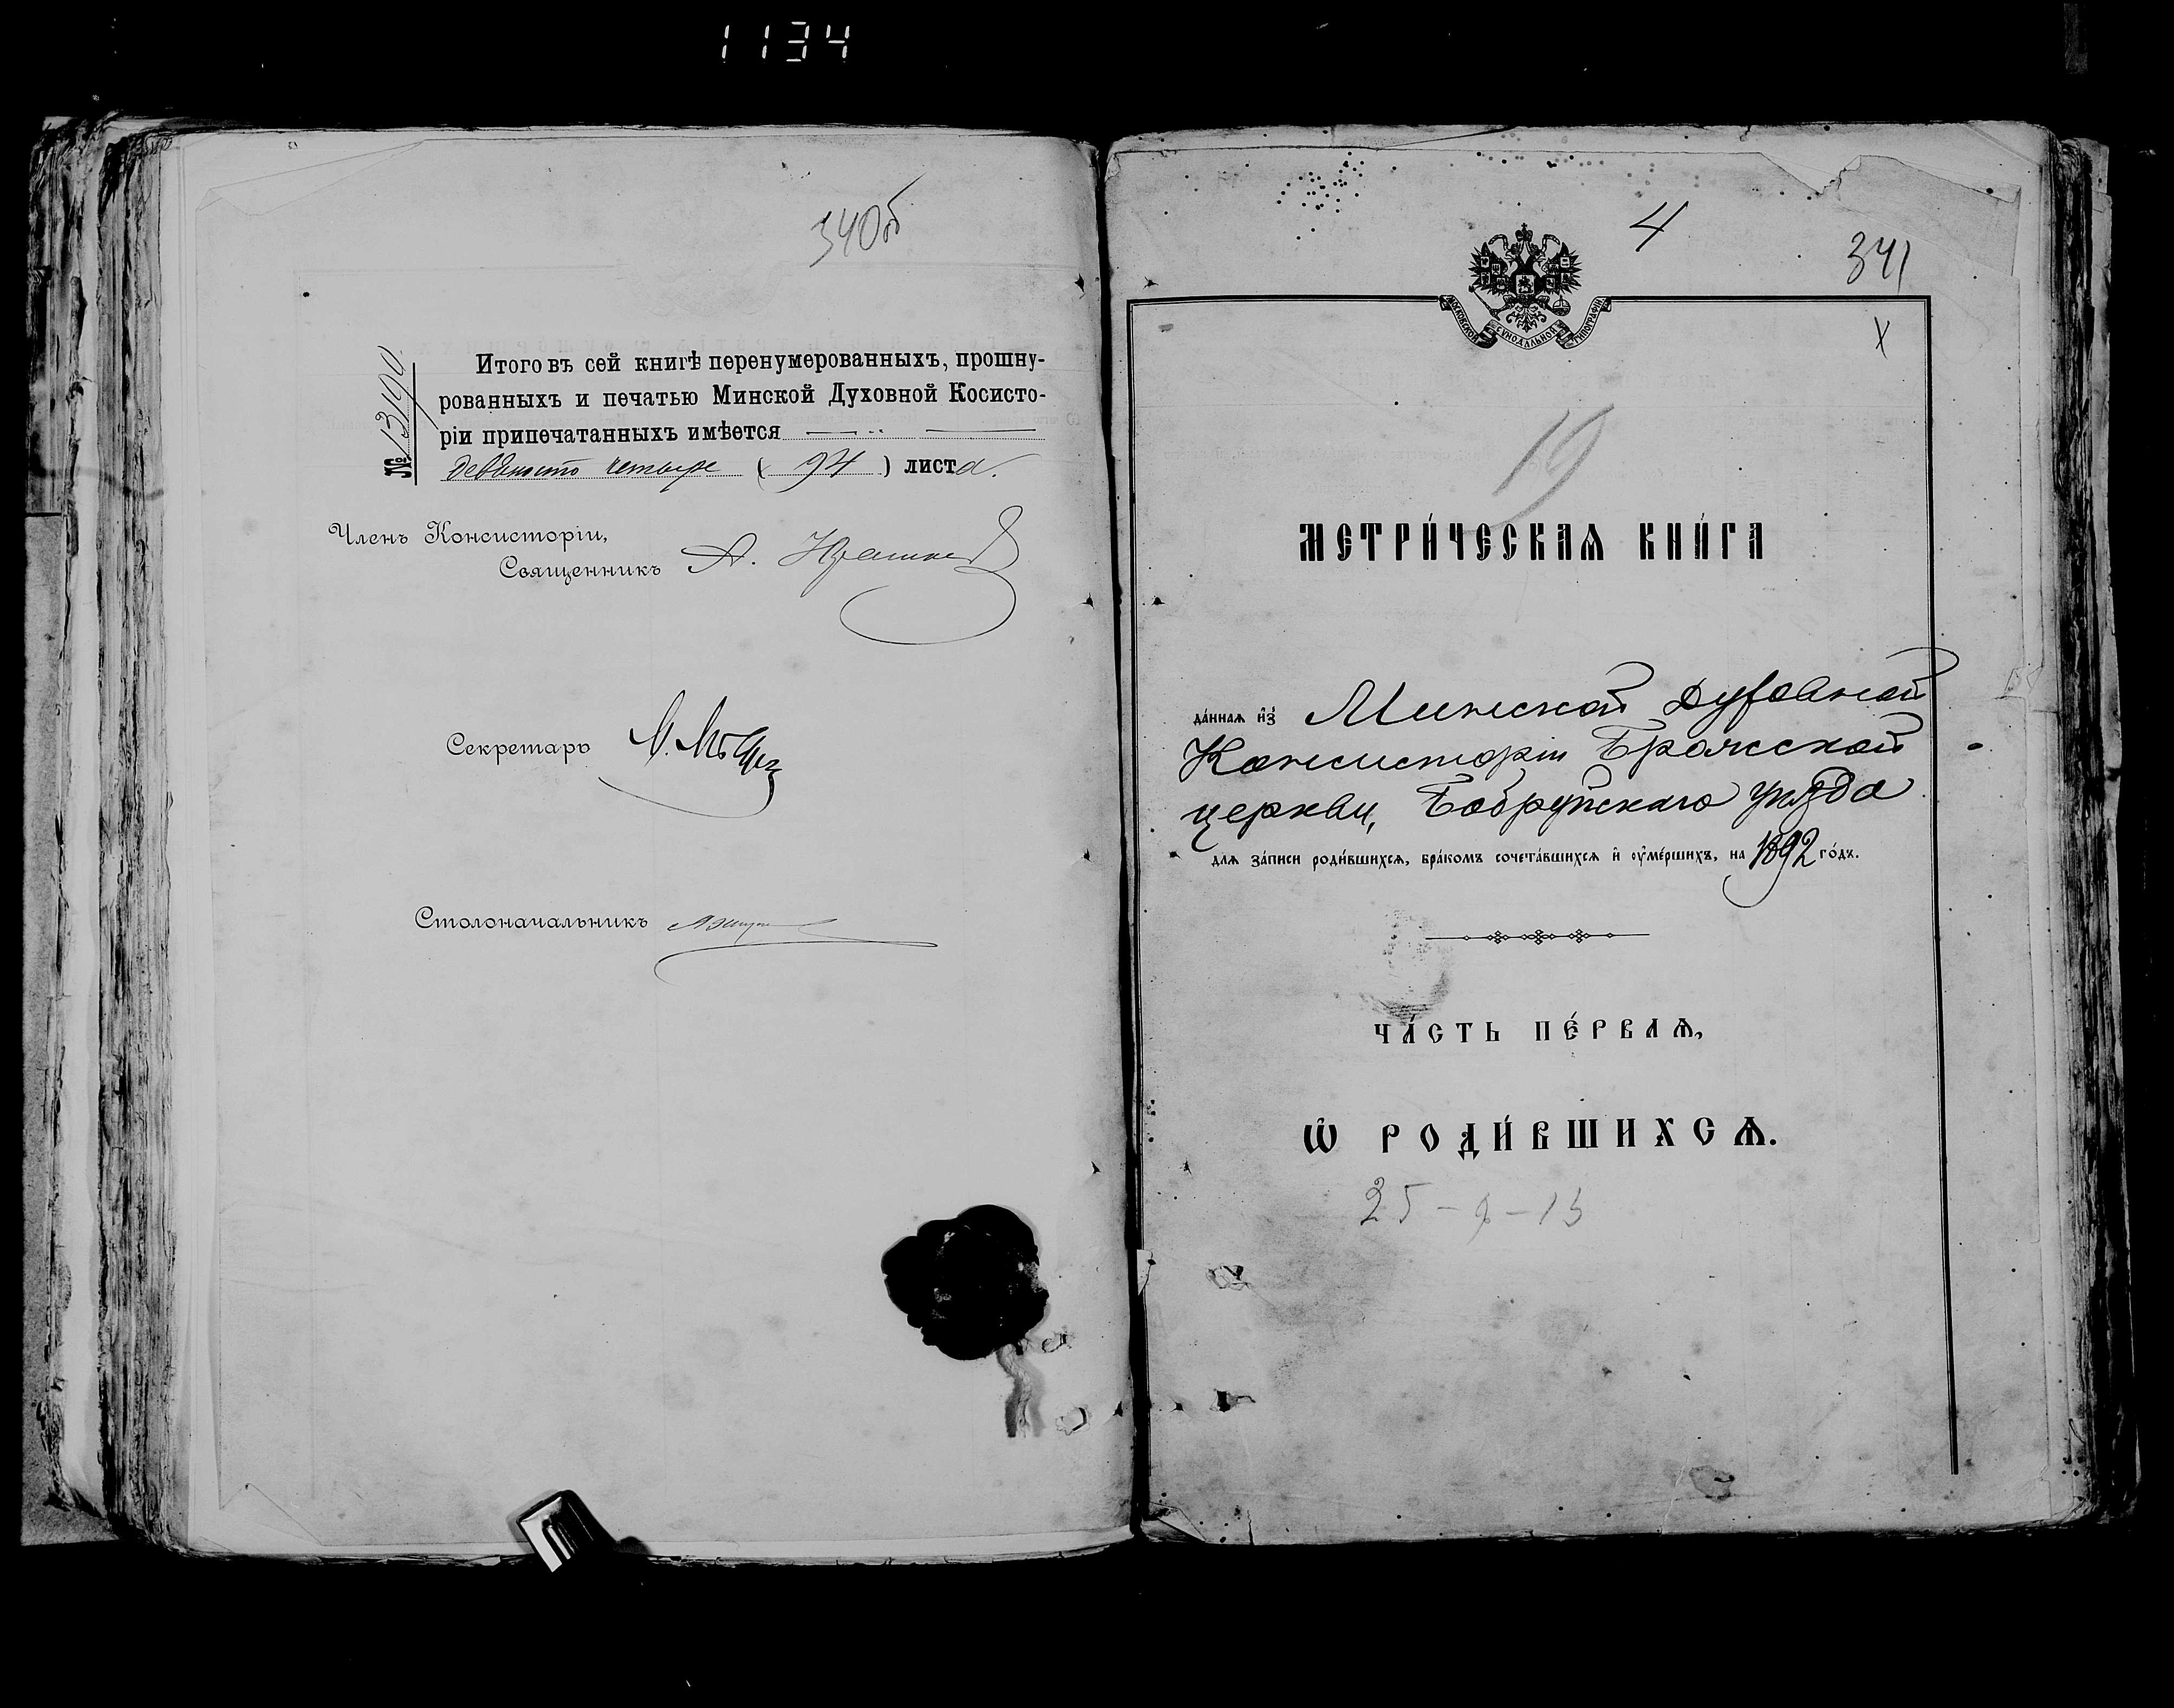 1134
340об
№ 13190
Итого въ сей книгѣ перенумерованныхъ, прошну-
рованныхъ и печатью Минской Духовной Косисто-
ріи припечатанныхъ имѣется
девяносто четыре ( 94 ) листа.
Членъ Консисторіи,
Священникъ А.
Секретарь
Столоначальникъ
4
341
МОСКОВСКОЙ СѴНОДАЛЬНОЙ ТИПОГРАФІИ
X
19
МЕТРИ́ЧЕСКАѦ КНИ́ГА
да́ннаѧ и҆з̾ Минской Духовной
Консисторіи Брожской
церкви, Бобруйскаго уѣзда
длѧ за́писи роди́вшихсѧ, бра́комъ сочета́вшихсѧ и҆ ѹ҆ме́ршихъ, на 1892 го́дъ.
ЧА́СТЬ ПЕ́РВАѦ,
Ѡ҆ РОДИ́ВШИХСѦ.
25 - 9 - 13